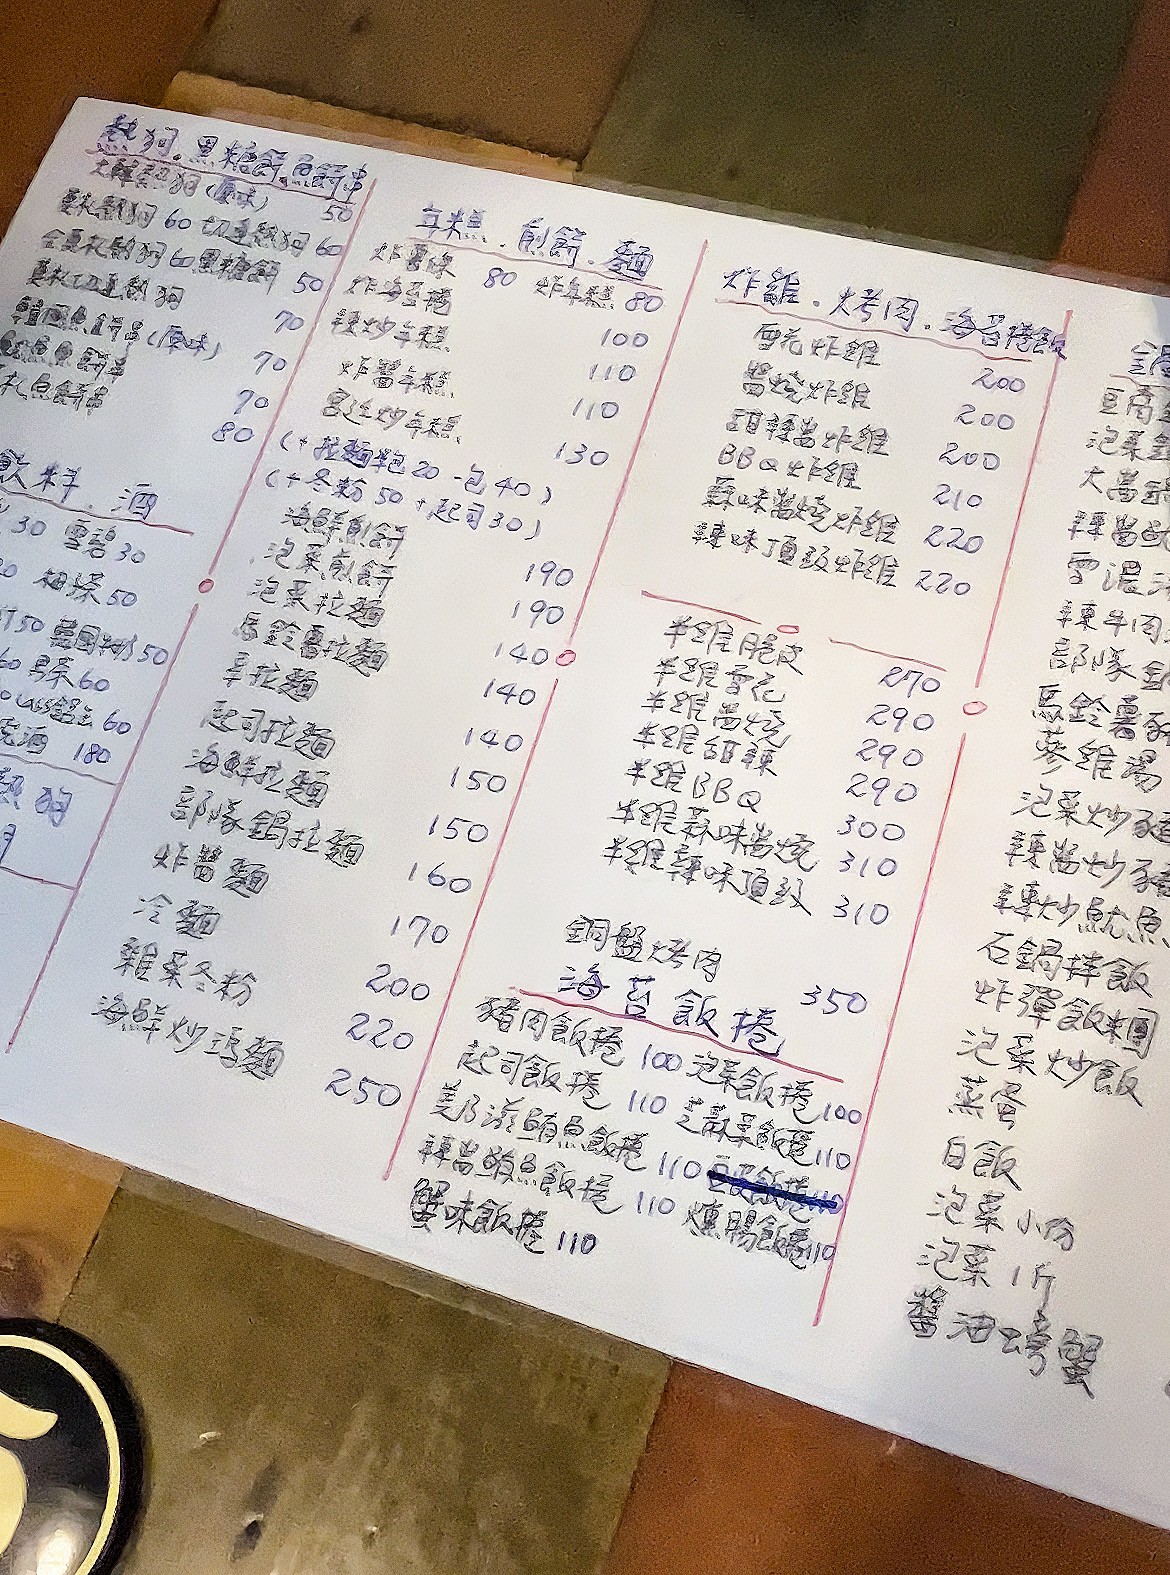 熱狗.黑糖餅.魚餅串
大熱狗(原味) 50
熱狗60 切達熱狗60
熱狗60 黑糖餅 50
切達熱狗 70
韓國魚餅串(原味) 70
魚餅串 70
魚餅串 80
飲料.酒
30 雪碧30
柚茶50
50 50
60 麥茶60
60
酒 180
熱狗
年糕.煎餅.麵
炸薯條 80 炸年糕80
炸海苔捲 100
辣炒年糕 110
炸醬年糕 110
宮廷炒年糕 130
(+拉麵半包20 一包40)
(+冬粉50 +起司30)
海鮮煎餅 190
泡菜煎餅 190
泡菜拉麵 140
馬鈴薯拉麵 140
辛拉麵 140
起司拉麵 150
海鮮拉麵 150
部隊鍋拉麵 160
炸醬麵 170
冷麵 200
雜菜冬粉 220
海鮮炒瑪麵 250
炸雞.烤肉.海苔捲飯
雪花炸雞 200
醬燒炸雞 200
甜辣醬炸雞 200
BBQ炸雞 210
蒜味醬燒炸雞 220
辣味頂級炸雞 220
半雞脆皮 270
半雞雪花 290
半雞醬燒 290
半雞甜辣 290
半雞BBQ 300
半雞蒜味醬燒 310
半雞辣味頂級 310
銅盤烤肉 350
海苔飯捲
豬肉飯捲 100 泡菜飯捲100
起司飯捲 110 芝麻菜飯捲110
美乃滋鮪魚飯捲 110 豆皮飯捲110
辣醬鮪魚飯捲 110 燻腸飯捲110
蟹味飯捲 110
豆腐
泡菜鍋
大醬鍋
辣醬魷
雪濃湯
辣牛肉
部隊鍋
馬鈴薯豬
蔘雞湯
泡菜炒豬
辣醬炒豬
辣炒魷魚
石鍋拌飯
炸彈飯糰
泡菜炒飯
蒸蛋
白飯
泡菜小份
泡菜1斤
醬油螃蟹